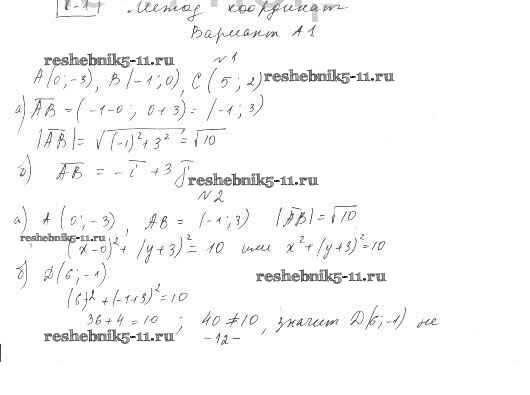 Метод координат
Вариант А1
reshebnik5-11.ru
№1
A(0;-3), B(-1;0), C(5;2) reshebnik5-11.ru
а) AB = (-1-0; 0+3) = (-1;3)
|AB| = √(-1)²+3² = √10
б) AB = -i + 3j
reshebnik5-11.ru
№2
а) A(0;-3), AB = (-1;3) |AB| = √10
reshebnik5-11.ru
(x-0)²+(y+3)²=10 или x²+(y+3)²=10
б) D(6;-1) reshebnik5-11.ru
(6)²+(-1+3)²=10
36+4=10; 40≠10, значит D(6;-1) не
reshebnik5-11.ru -12-